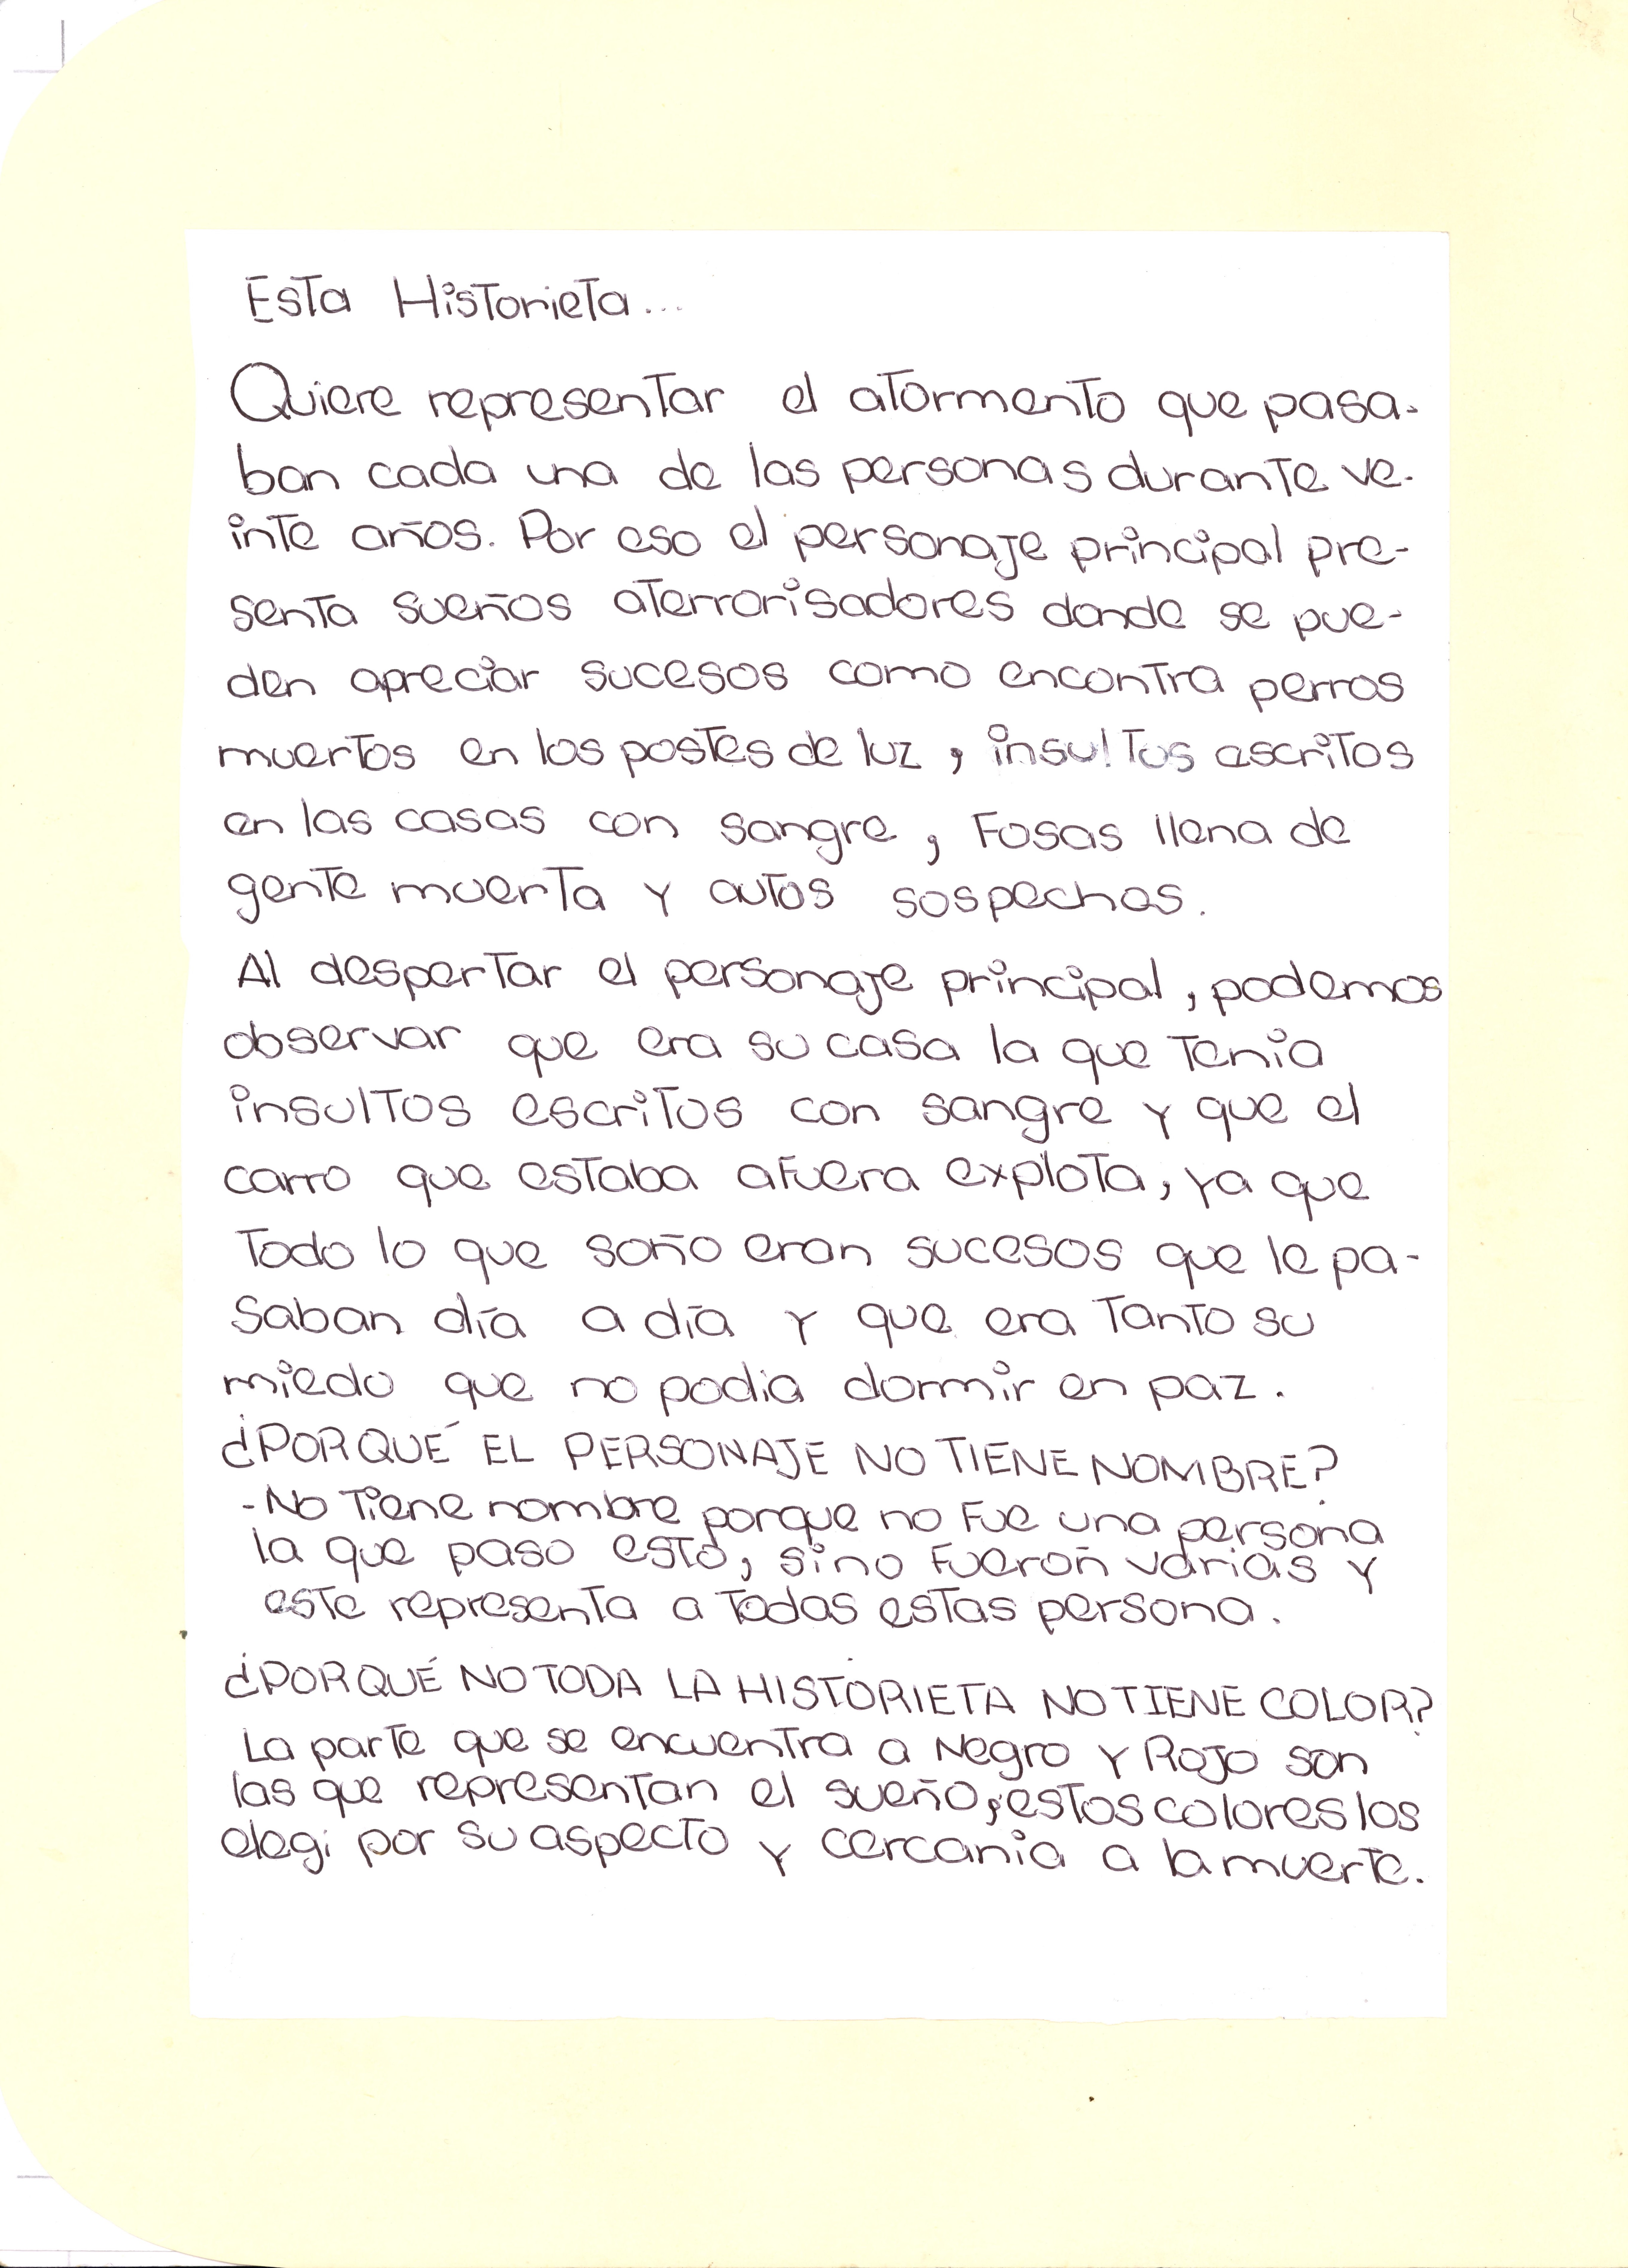 Esta Historieta...
Quiere representar el atormento que pasa-
ban cada una de las personas durante ve-
inte años. Por eso el personaje principal pre-
senta sueños aterrorisadores donde se pue-
den apreciar sucesos como encontra perros
muertos en los postes de luz, insultos escritos
en las casas con sangre, Fosas llena de
gente muerta y autos sospechos.
Al despertar el personaje principal, podemos
observar que era su casa la que Tenia
insultos escritos con sangre y que el
carro que estaba afuera explota, ya que
Todo lo que soño eran sucesos que le pa-
saban día a día y que era Tanto su
miedo que no podia dormir en paz.
¿PORQUÉ EL PERSONAJE NO TIENE NOMBRE?
-No Tiene nombre porque no Fue una persona
la que paso esto, sino Fueron varias y
este representa a Todas estas persona.
¿PORQUÉ NO TODA LA HISTORIETA NO TIENE COLOR?
La parte que se encuentra a Negro y Rojo son
las que representan el sueño, estos colores los
elegi por su aspecto y cercania a la muerte.